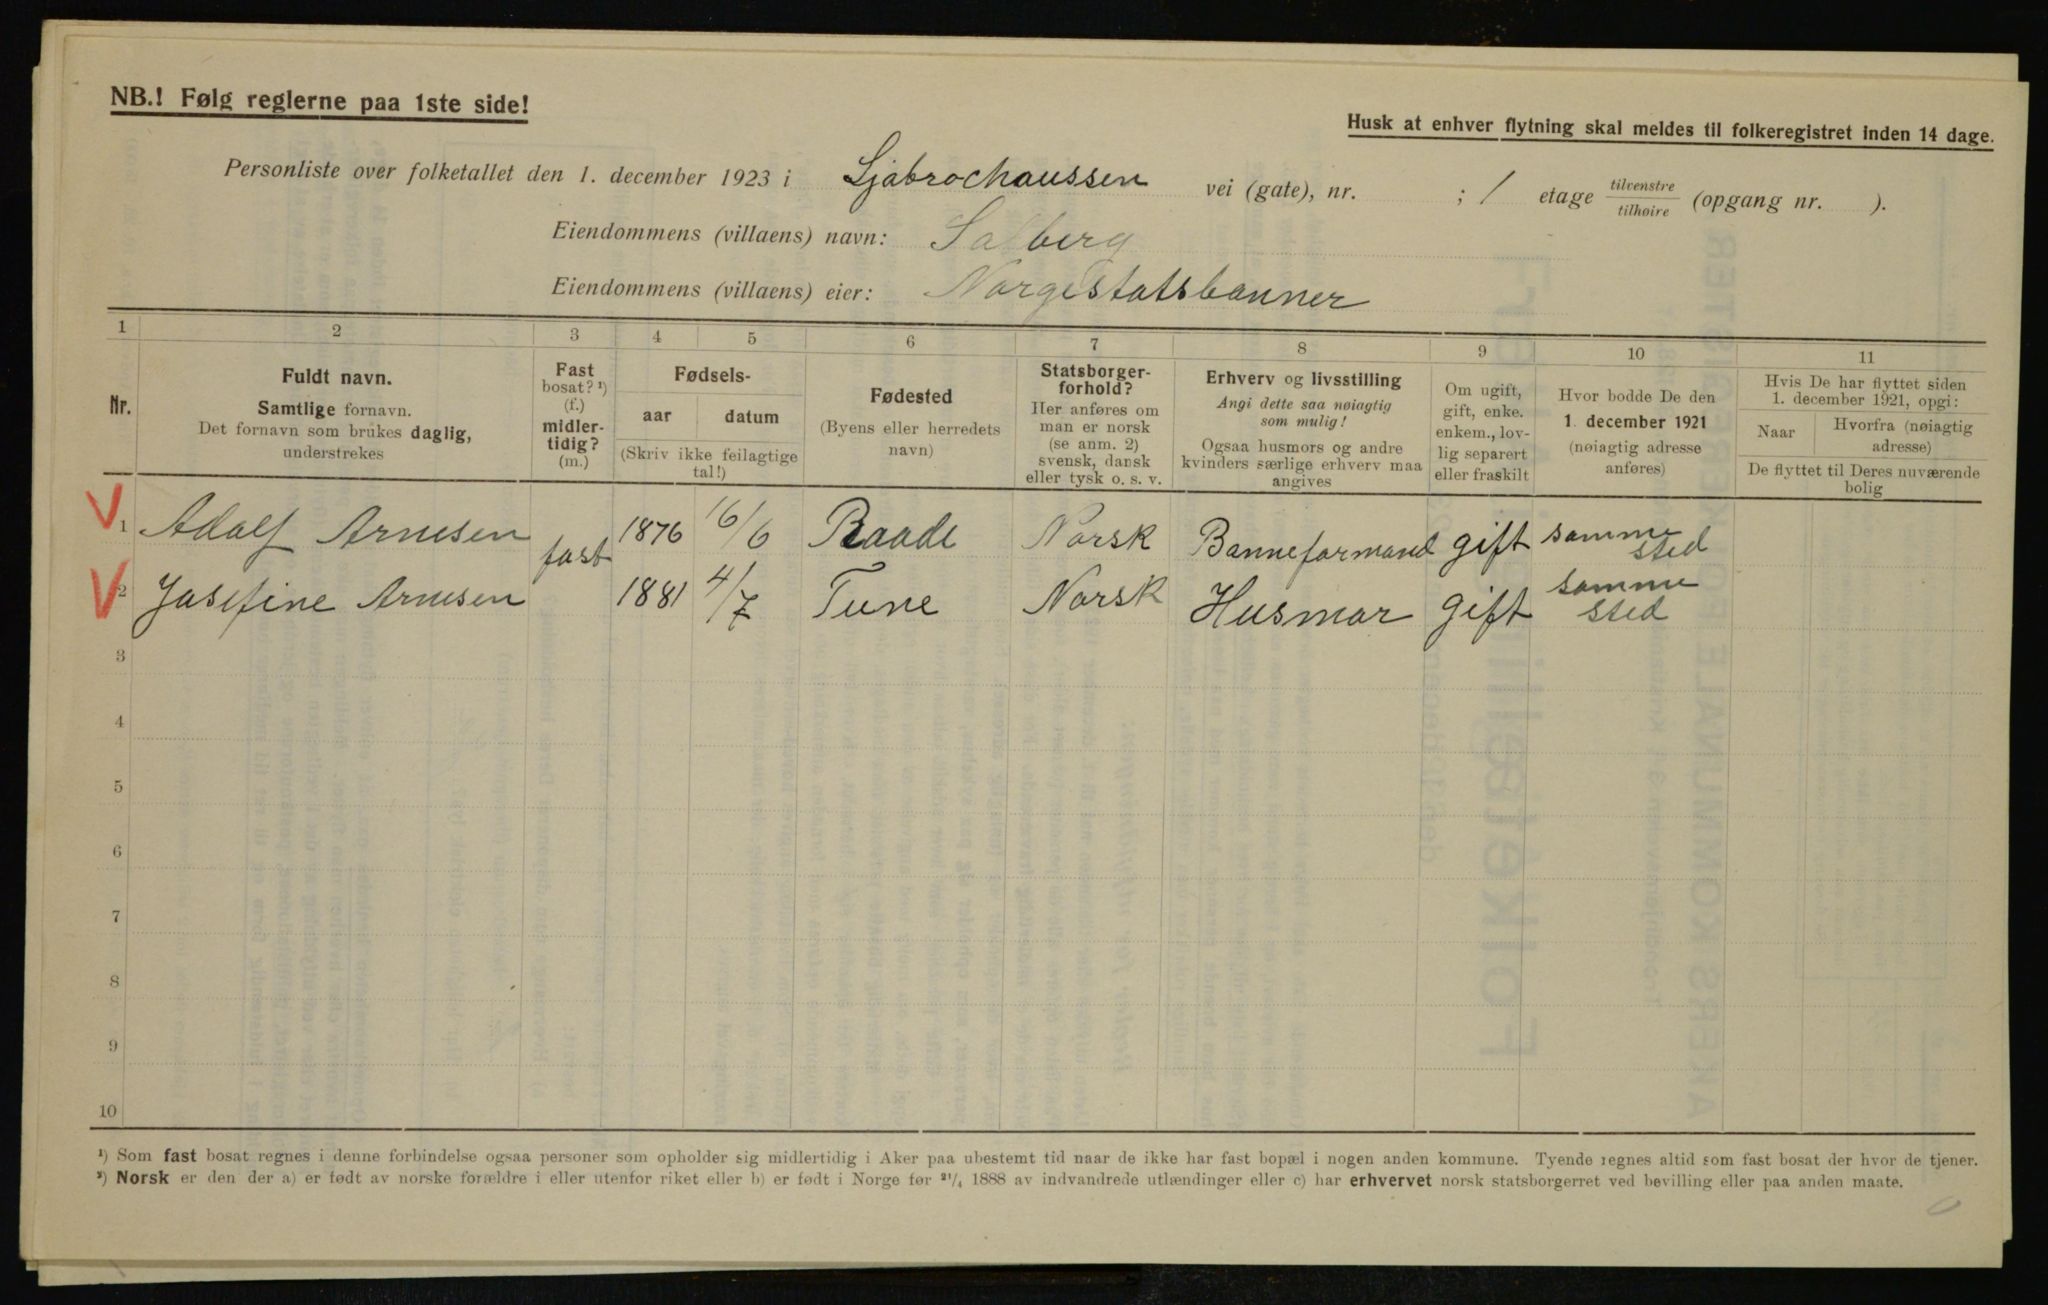 NB.! Følg reglerne paa 1ste side!
Husk at enhver flytning skal meldes til folkeregistret inden 14 dage.
Personliste over folketallet den 1. december 1923 i Ljabrochaussen vei (gate), nr. ; 1 etage tilvenstre / tilhøire (opgang nr. ).
Eiendommens (villaens) navn: Solberg
Eiendommens (villaens) eier: Norgestatsbanner
1 2 3 4 5 6 7 8 9 10 11
Nr.
Fuldt navn.
Samtlige fornavn.
Det fornavn som brukes daglig,
understrekes
Fast
bosat? ¹)
(f.)
midler-
tidig?
(m.)
Fødsels-
aar datum
(Skriv ikke feilagtige
tal!)
Fødested
(Byens eller herredets
navn)
Statsborger-
forhold?
Her anføres om
man er norsk
(se anm. 2)
svensk, dansk
eller tysk o. s. v.
Erhverv og livsstilling
Angi dette saa nøiagtig
som mulig!
Ogsaa husmors og andre
kvinders særlige erhverv maa
angives
Om ugift,
gift, enke.
enkem., lov-
lig separert
eller fraskilt
Hvor bodde De den
1. december 1921
(nøiagtig adresse
anføres)
Hvis De har flyttet siden
1. december 1921, opgi:
Naar
Hvorfra (nøiagtig
adresse)
De flyttet til Deres nuværende
bolig
1 Adolf Arnesen fast 1876 16/6 Raade Norsk Banneformand gift samme sted
2 Josefine Arnesen 1881 4/7 Tune Norsk Husmor gift samme sted
3
4
5
6
7
8
9
10
¹) Som fast bosat regnes i denne forbindelse ogsaa personer som opholder sig midlertidig i Aker paa ubestemt tid naar de ikke har fast bopæl i nogen anden kommune. Tyende regnes altid som fast bosat der hvor de tjener.
²) Norsk er den der a) er født av norske forældre i eller utenfor riket eller b) er født i Norge før ²¹/₄ 1888 av indvandrede utlændinger eller c) har erhvervet norsk statsborgerret ved bevilling eller paa anden maate.